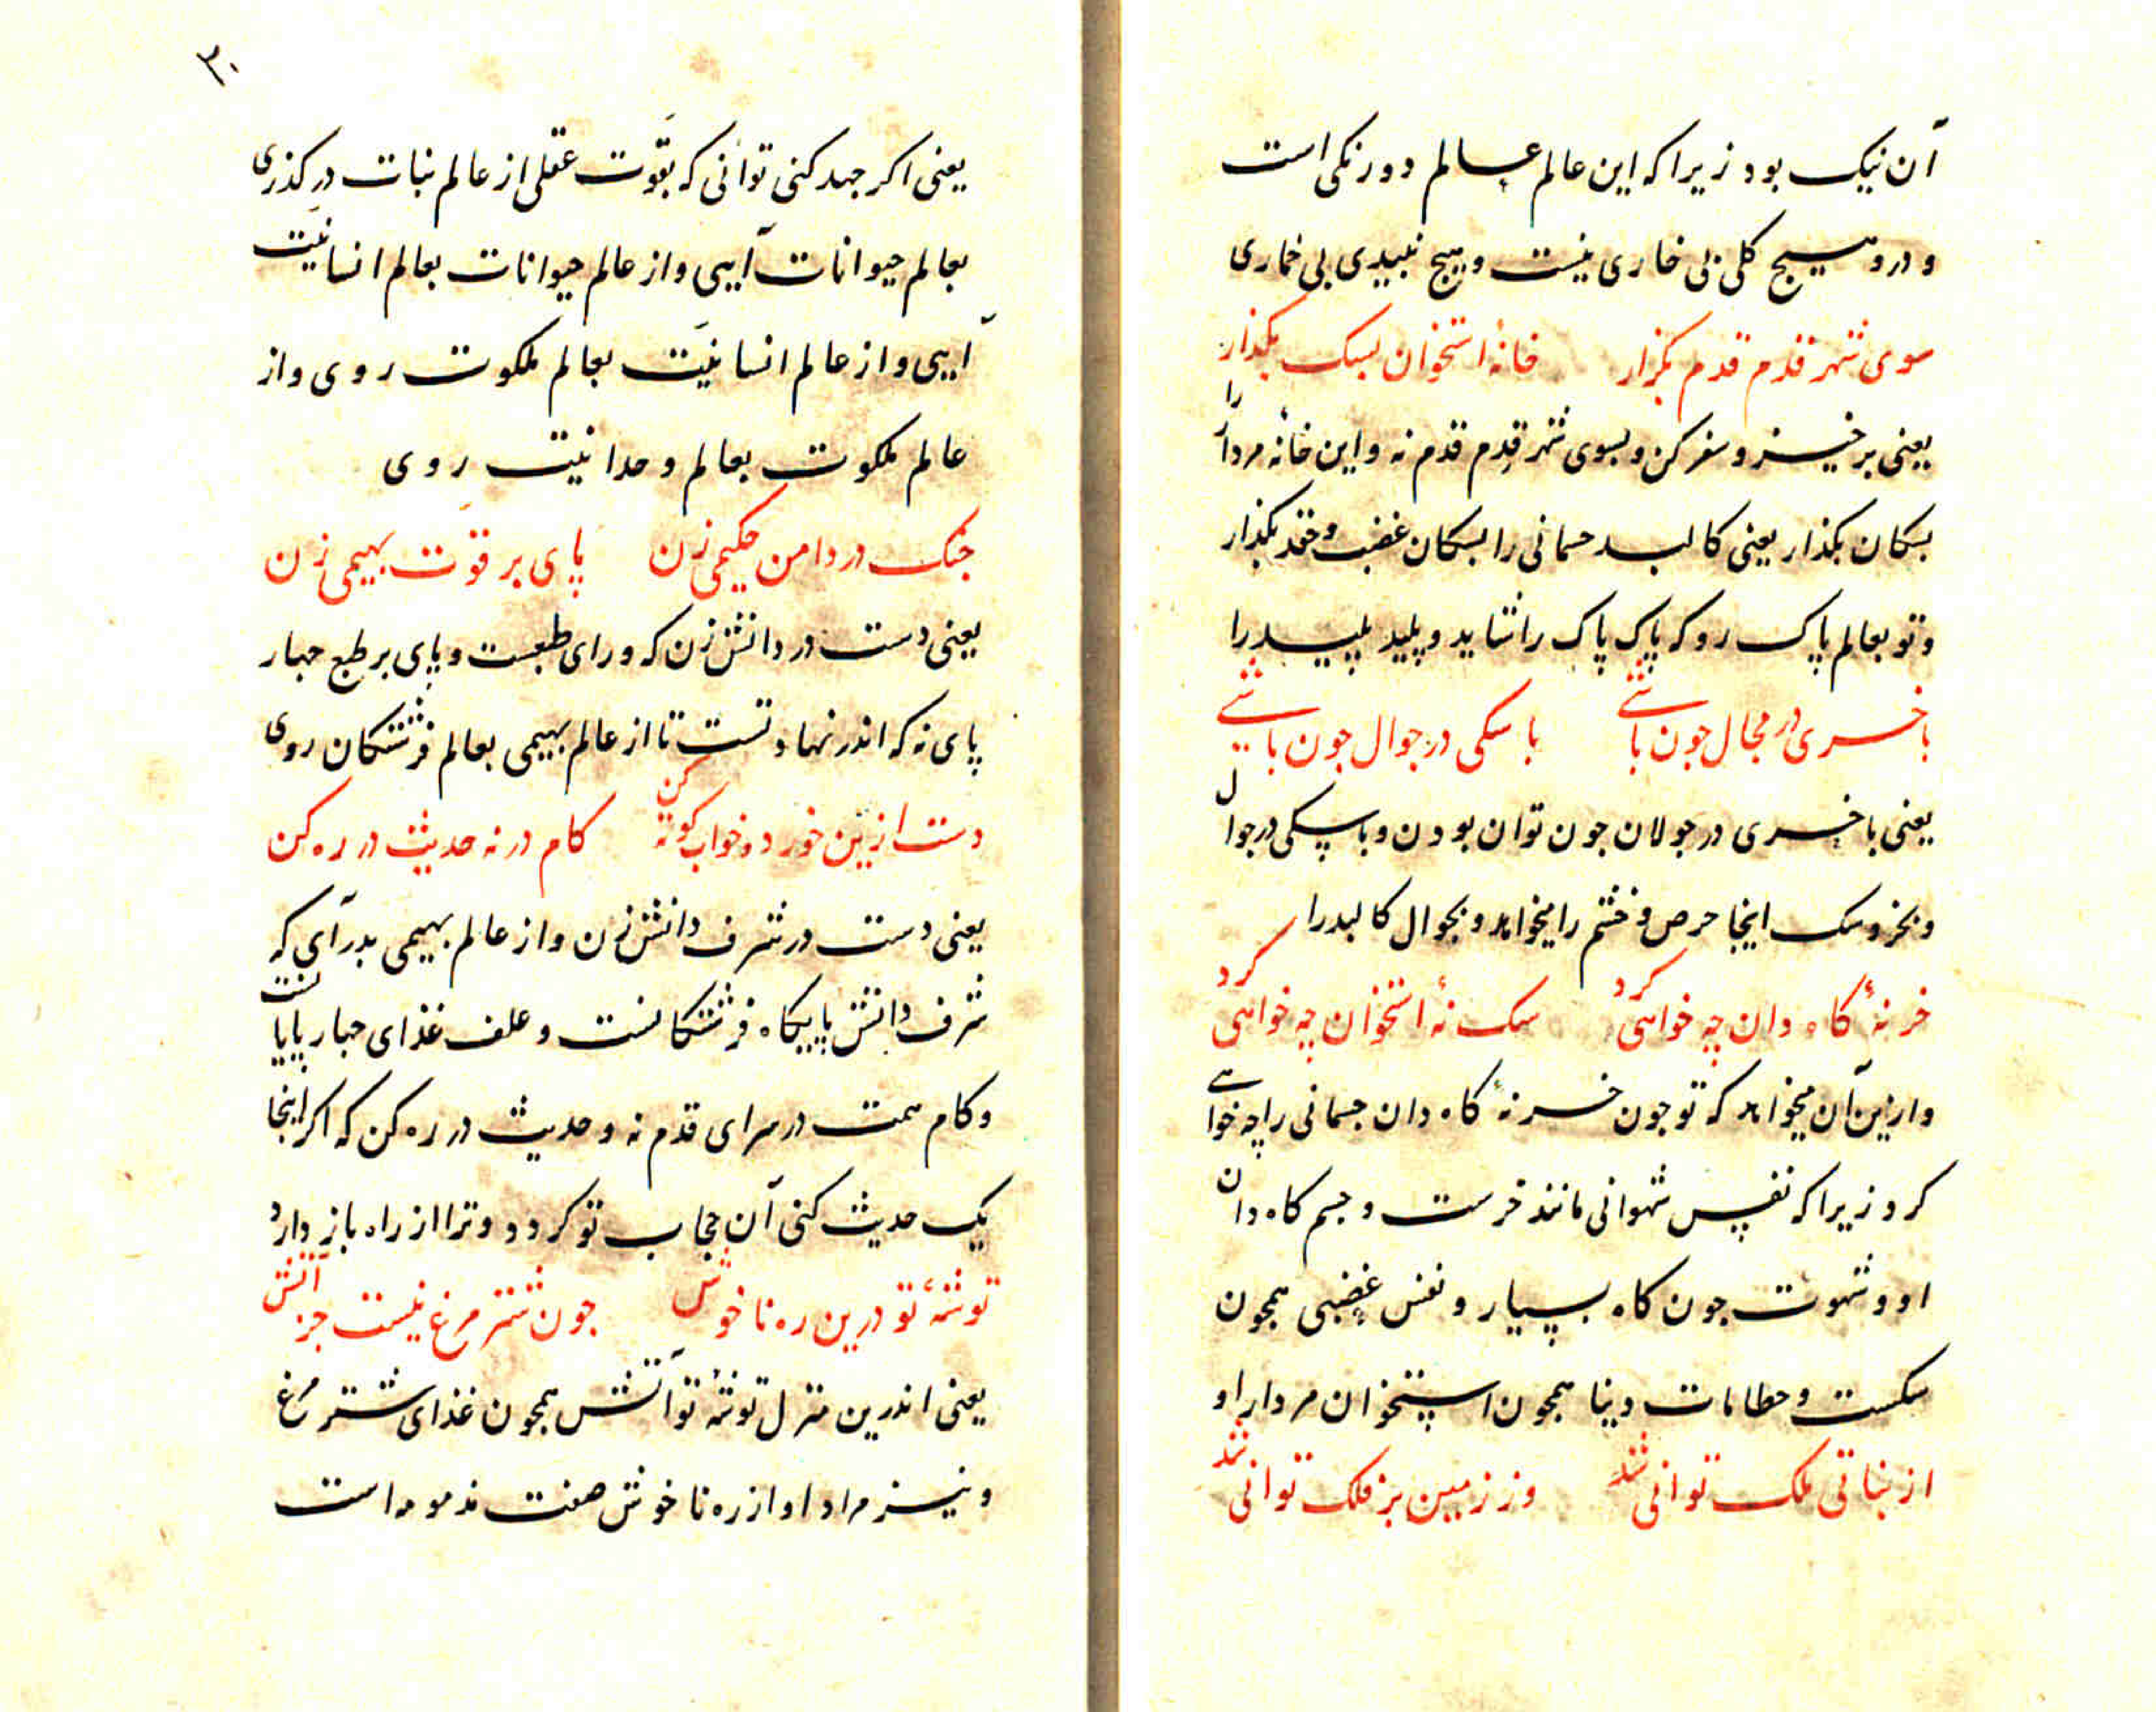 آن نیک بود زیرا که این عالم عالم دو رنکی است
و درو هیچ کلی بی خاری نیست و هیچ نبیدی بی خماری
سوی شهر قدم قدم بکزار خانهٔ استخوان بسک بکذار
یعنی برخیز و سفر کن و بسوی شهر قدم قدم نه و این خانهٔ مردار را
بسکان بکذار یعنی کالبد جسمانی را بسکان غضب و حقد بکذار
و تو بعالم پاک رو که پاک پاک را شاید و پلید پلید را
با خری در مجال جون باشی با سکی در جوال جون باشی
یعنی با خری در جولان جون توان بودن و با سکی در جوال
و بخر و سک اینجا حرص و خشم را میخواهد و بجوال کالبد را
خر نهٔ کاه دان چه خواهی کرد سک نهٔ استخوان چه خواهی کرد
و ازین آن میخواهد که تو جون خر نهٔ کاه دان جسمانی را چه خواهی
کرد زیرا که نفس شهوانی مانند خرست و جسم کاه دان
او و شهوت جون کاه بسیار و نفس غضبی همجون
سکست و حطامات دنیا همجون استخوان مردار او
از نباتی ملک توانی شد وز زمین بر فلک توانی شد
۳۰
یعنی اکر جهد کنی توانی که بقوّت عقلی از عالم نبات درکذری
بعالم حیوانات آیی و از عالم حیوانات بعالم انسانیّت
آیی و از عالم انسانیّت بعالم ملکوت روی و از
عالم ملکوت بعالم وحدانیت روی
جنک در دامن حکیمی زن پای بر قوّت بهیمی زن
یعنی دست در دانش زن که ورای طبعست و پای بر طبع جهار
پای نه که اندر نهاد تست تا از عالم بهیمی بعالم فرشتکان روی
دست ازین خورد و خواب کوته کن کام در نه حدیث در ره کن
یعنی دست در شرف دانش زن و از عالم بهیمی بدر آی که
شرف دانش پایکاه فرشتکانست و علف غذای جهار پایانست
و کام همت در سرای قدم نه و حدیث در ره کن که اکر اینجا
یک حدیث کنی آن حجاب تو کردد و ترا از راه باز دارد
توشهٔ تو درین ره ناخوش جون شتر مرغ نیست جز آتش
یعنی اندرین منزل توشهٔ تو آتش همجون غذای شتر مرغ
و نیز مراد او از ره ناخوش صفت مذمومه است